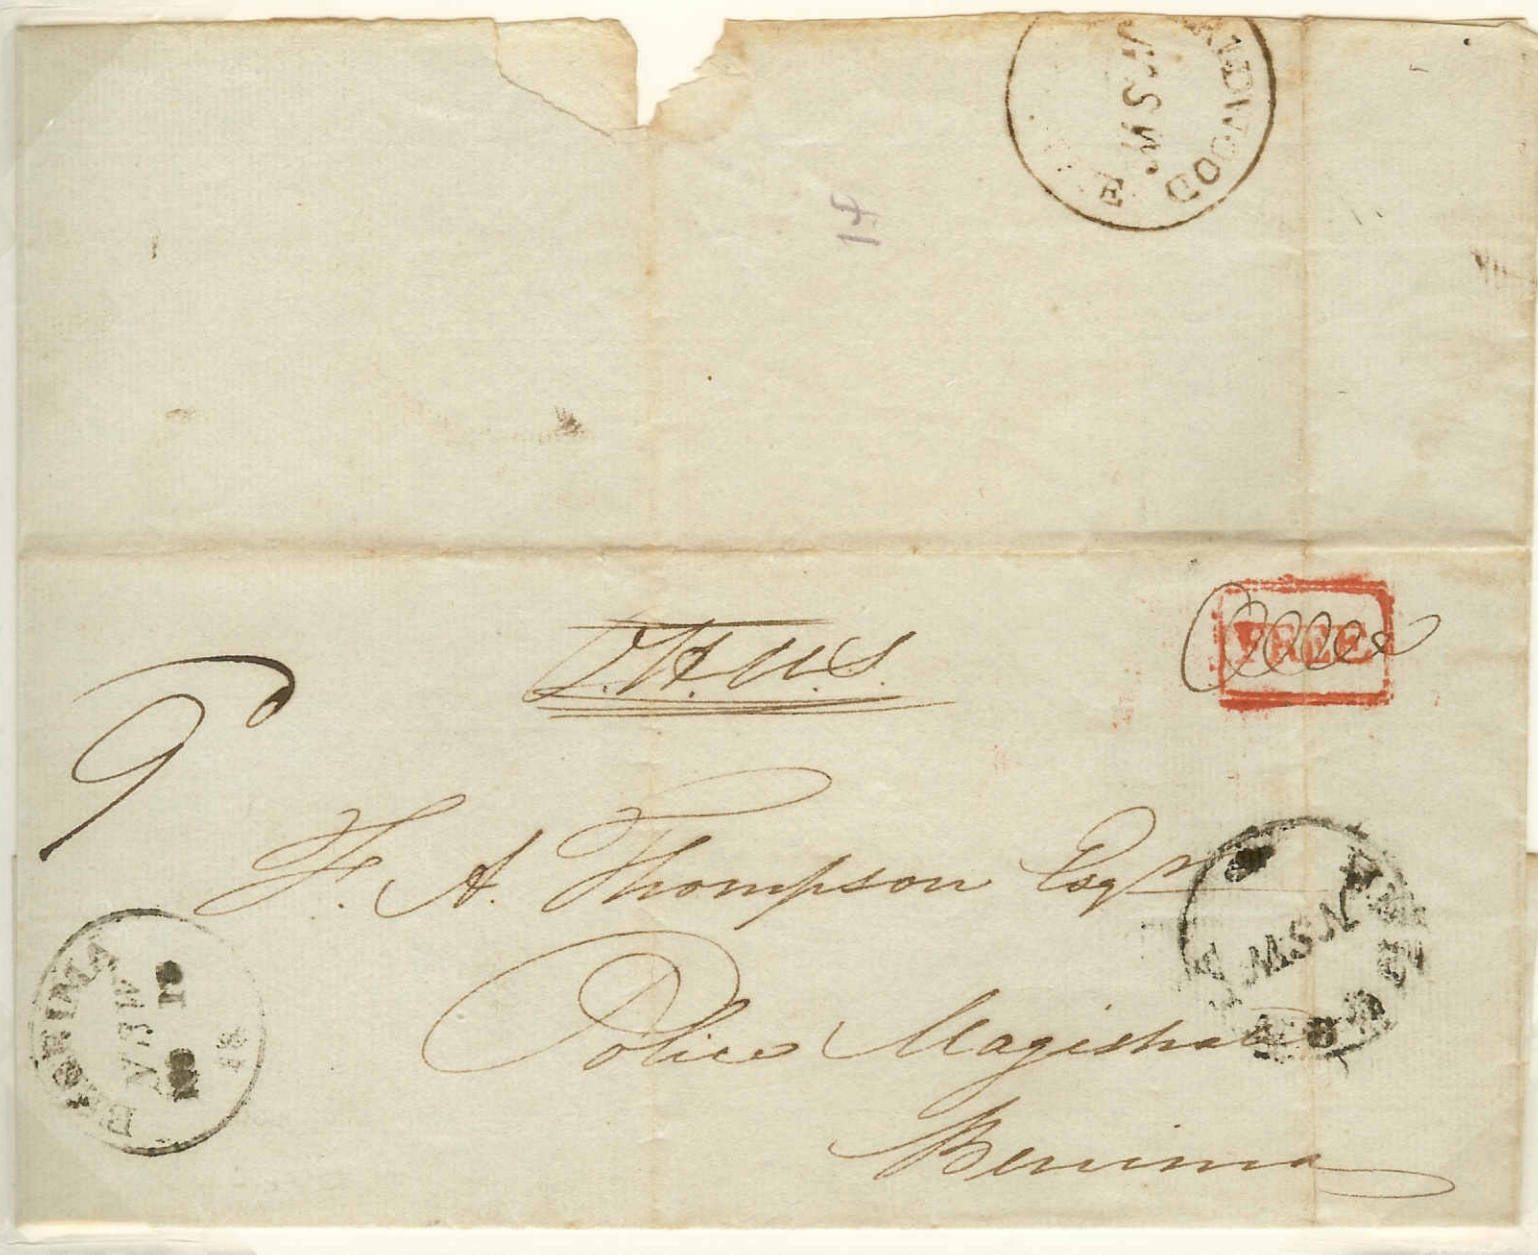 N S W
E
14
O.H.M.S.
FREE
9
F. A. Thompson Esqr
Police Magistrate
Berrima
BERRIMA
N S W